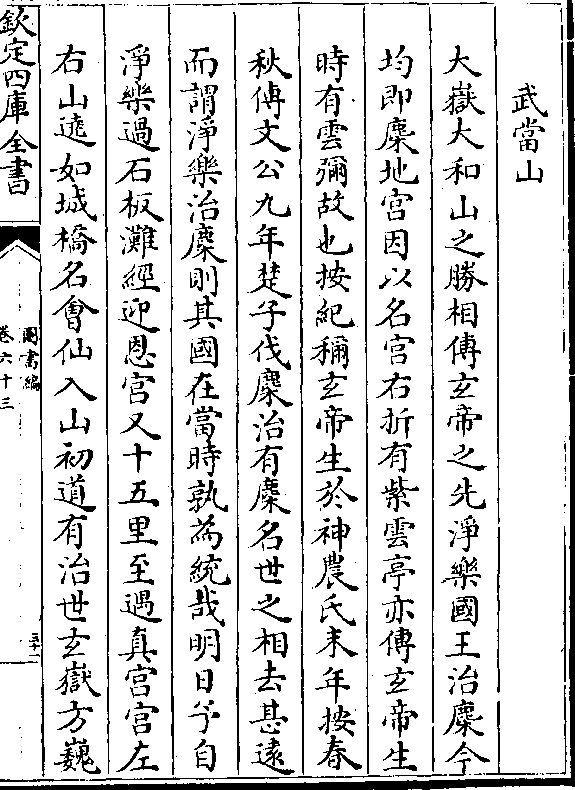 武當山
大嶽大和山之勝相傳玄帝之先淨樂國王治麇今
均即麇地宫因以名宫右折有紫雲亭亦傳玄帝生
時有雲彌故也按紀稱玄帝生於神農氏末年按春
秋傳文公九年楚子伐麇治有麇名世之相去甚遠
而謂淨樂治麇則其國在當時孰為統哉明日予自
淨樂過石板灘經迎恩宫又十五里至遇真宫宫左
右山遶如城橋名會仙入山初道有治世玄嶽方巍
欽定四庫全書
圖書編
卷六十三